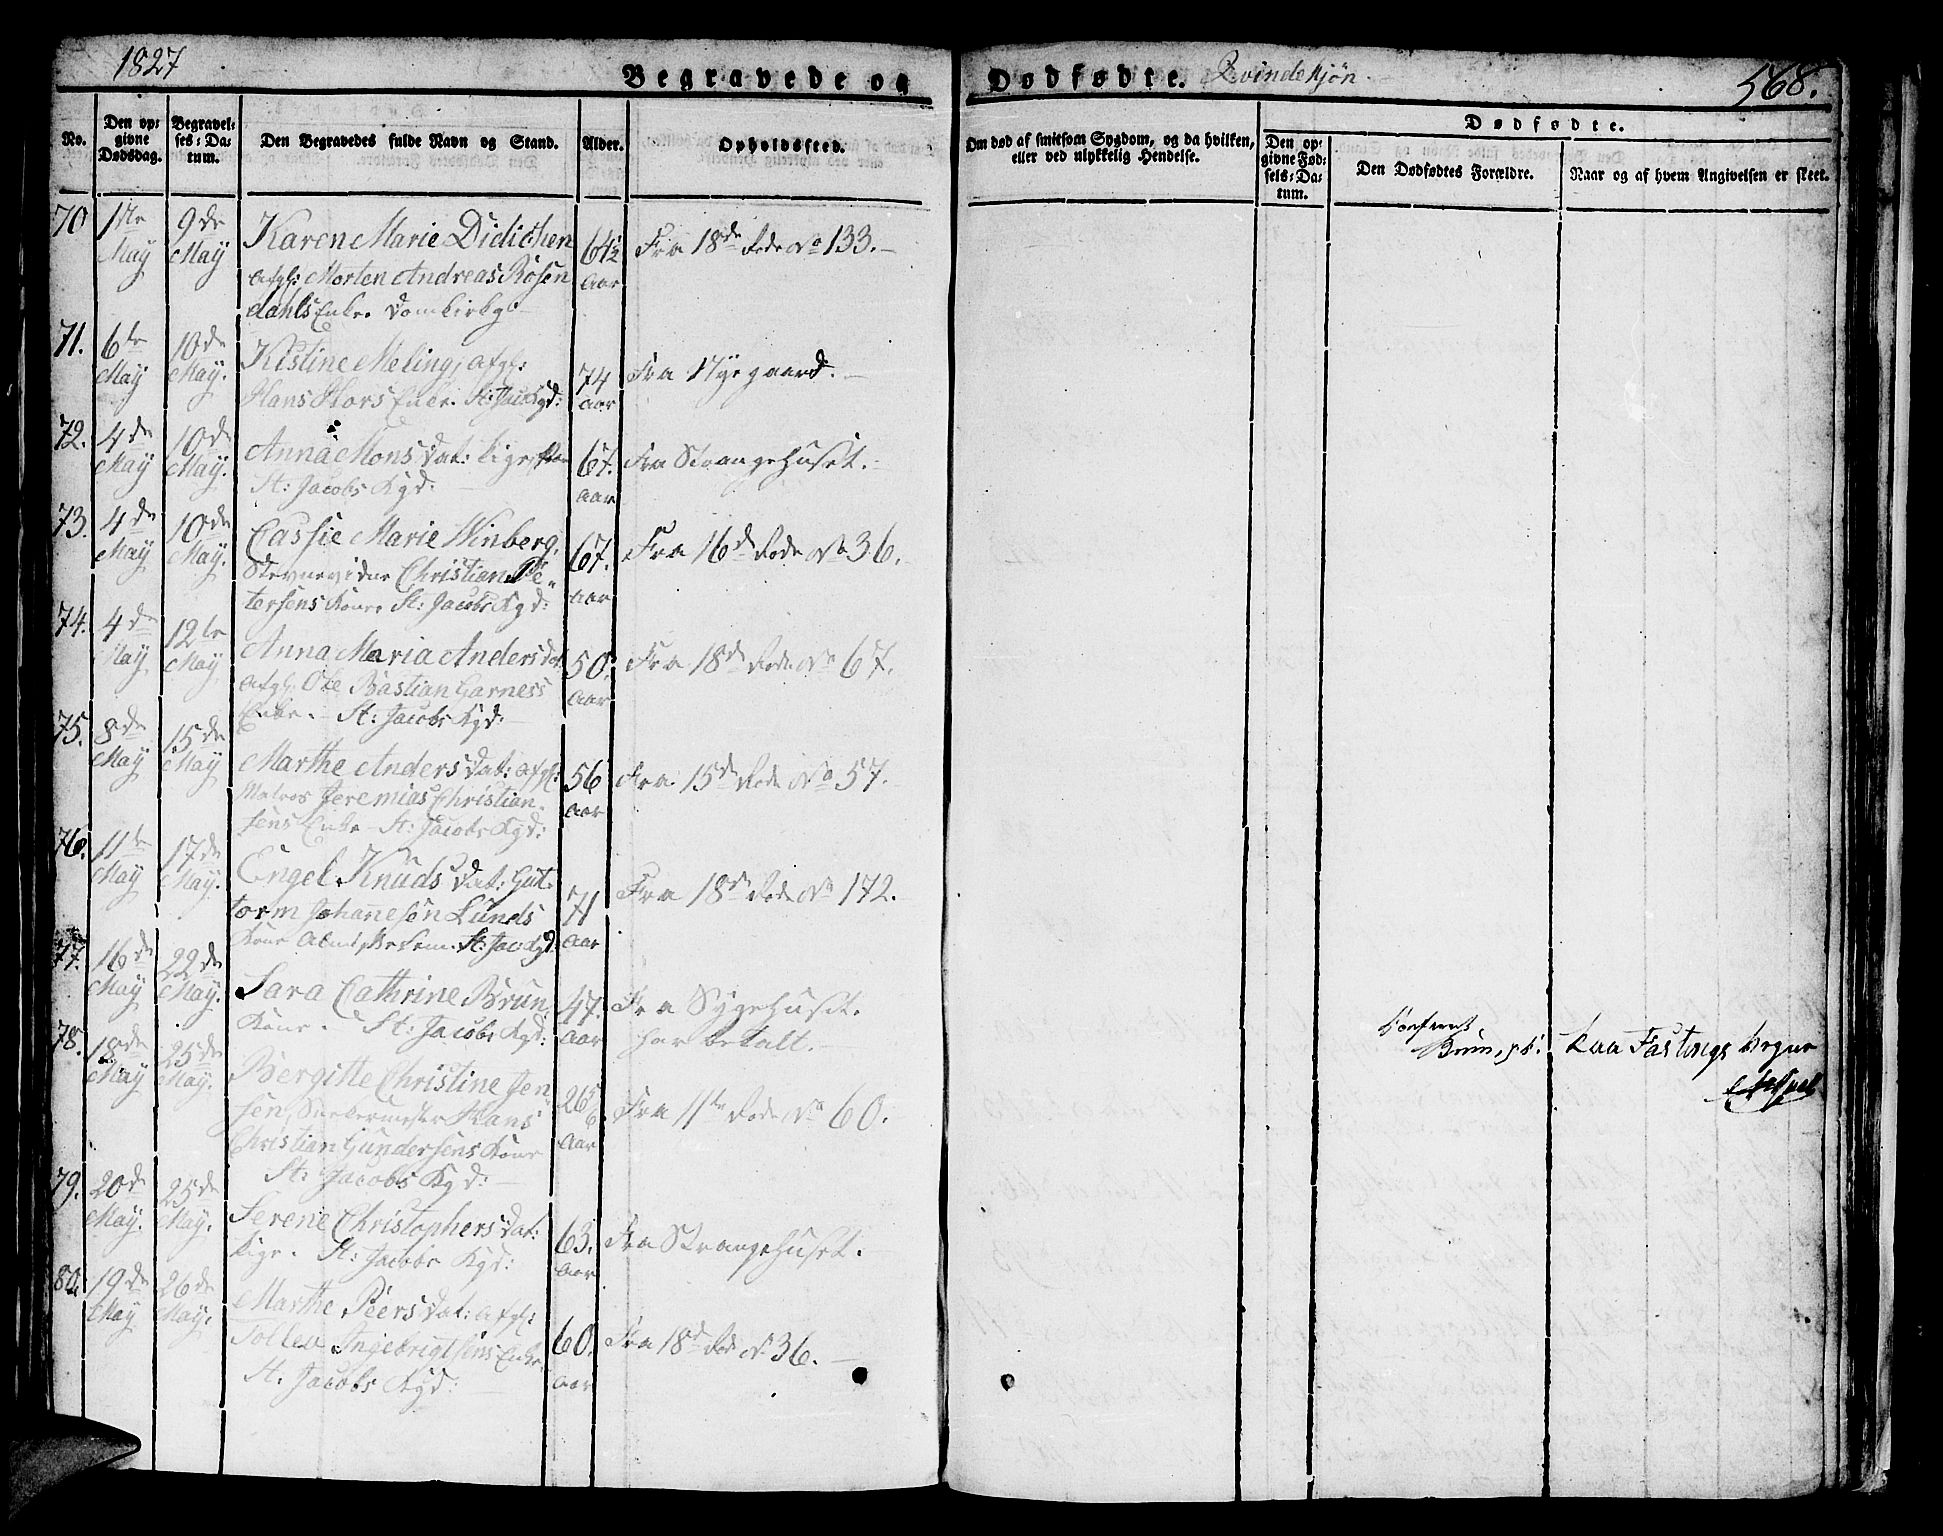 1827
Begravede og Dødfødte. Qvindekjøn.
568.
No.
Den op-
givne
Dødsdag.
Begravel-
ses-Da-
tum.
Den Begravedes fulde Navn og Stand.
Alder.
Opholdssted.
Om død af smitsom Sygdom, og da hvilken,
eller ved ulykkelig Hendelse.
Dødfødte.
Den op-
givne Fød-
sels-Da-
tum.
Den Dødfødtes Forældre.
Naar og af hvem Angivelsen er skeet.
70 1ste May 9de May Karen Marie Didichen
afgl: Morten Andreas Rosen
dahls Enke. Domkirkg
64½ Aar
Fra 18de Rode No 133.
71. 6te May 10de May. Kistine Meling, afgl:
Hans Hors Enke. St: Jac Kgd:
74 Aar
Fra Nyegaard.
72. 4de May 10de May. Anna Mons Dat: Pige,
St: Jacobs Kgd:
67. Aar
Fra Strangehuset.
73. 4de May 10de May. Cassie Marie Winberg,
Stevnevidne Christian Pe-
tersens Kone St: Jacobs Kgd:
67. Aar
Fra 16de Rode No 36.
74. 4de May 12te May Anna Maria Anders Dat
afgl: Ole Bastian Garness
Enke. St: Jacobs Kgd:
50. Aar
Fra 18de Rode No 67.
75. 8de May 15de May Marthe Anders Dat: afgl:
Matros Jeremias Christian-
sens Enke St: Jacobs Kgd:
56 Aar
Fra 15de Rode No 57.
76. 11te May 17de May. Engel Knuds Dat: Gut-
torm Johannesön Lunds
Kone Almisselem. St: Jac Kgd
71 Aar
Fra 18de Rode No 172.
77. 16de May 22de May. Sara Cathrine Brun,
Kone. St: Jacobs Kgd:
47. Aar
Fra Sygehuset.
har betalt.
78. 18de May 25de May. Bergitte Christine Jen
sen, Hans
Christian Gundersens Kone
St: Jacobs Kgd:
26 Aar
Fra 11te Rode No 60.
Brun,
Fastings
79. 20de May. 25de May. Serene Christophers Dat:
Pige. St: Jacobs Kgd:
63. Aar
Fra Strangehuset.
80. 19de May 26de May. Marthe Peers Dat: afgl:
Tollev Ingebrigtsens Enke
St: Jacobs Kgd:
60. Aar
Fra 18de Rode No 36.